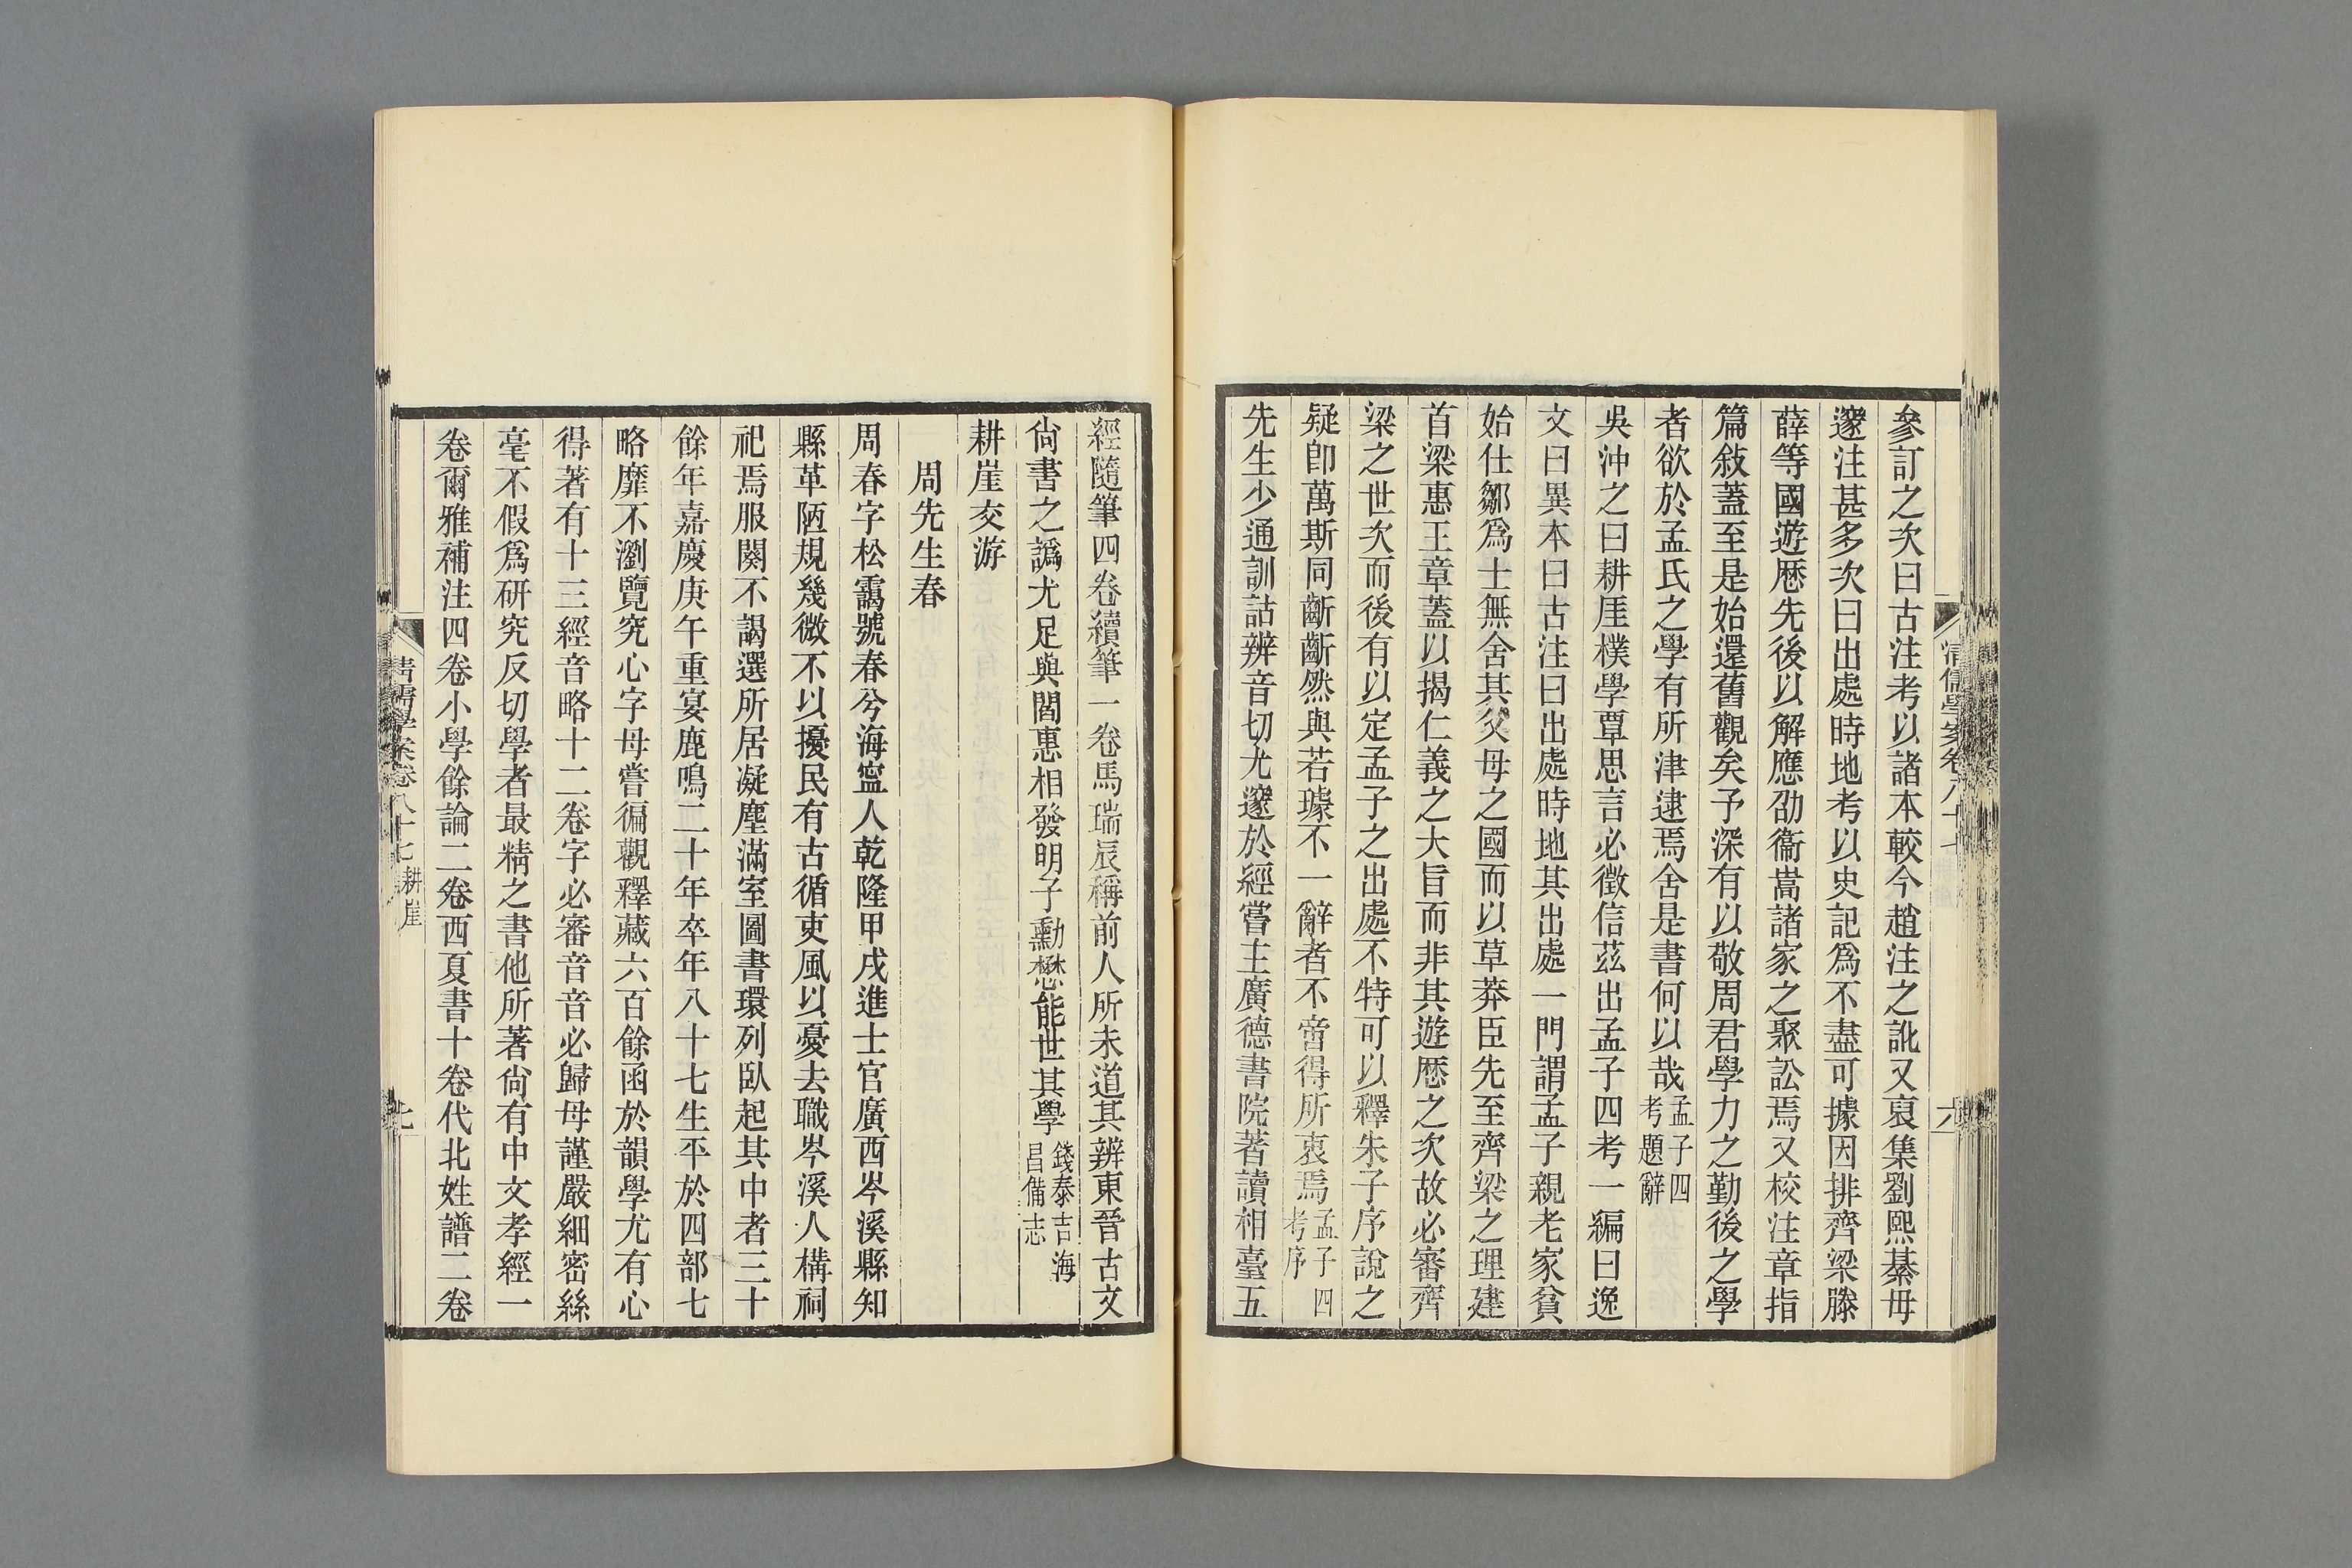 參訂之次曰古注考以諸本較今趙注之訛又裒集劉熙綦毋
邃注甚多次曰出處時地考以史記爲不盡可據因排齊梁滕
薛等國遊歷先後以解應劭衞嵩諸家之聚訟焉又校注章指
篇敍蓋至是始還舊觀矣予深有以敬周君學力之勤後之學
者欲於孟氏之學有所津逮焉舍是書何以哉孟子四考題辭
吳沖之曰耕厓樸學覃思言必徵信茲出孟子四考一編曰逸
文曰異本曰古注曰出處時地其出處一門謂孟子親老家貧
始仕鄒爲士無舍其父母之國而以草莽臣先至齊梁之理建
首梁惠王章蓋以揭仁義之大旨而非其遊歷之次故必審齊
梁之世次而後有以定孟子之出處不特可以釋朱子序說之
疑卽萬斯同齗齗然與若璩不一辭者不啻得所衷焉孟子四考序
先生少通訓詁辨音切尤邃於經嘗主廣德書院著讀相臺五
清儒學案卷八十七
六
經隨筆四卷續筆一卷馬瑞辰稱前人所未道其辨東晉古文
尙書之譌尤足與閻惠相發明子勳懋能世其學錢泰吉海昌備志
耕崖交游
周先生春
周春字松靄號春兮海寧人乾隆甲戌進士官廣西岑溪縣知
縣革陋規幾微不以擾民有古循吏風以憂去職岑溪人構祠
祀焉服闋不謁選所居凝塵滿室圖書環列臥起其中者三十
餘年嘉慶庚午重宴鹿鳴二十年卒年八十七生平於四部七
略靡不瀏覽究心字母嘗徧觀釋藏六百餘函於韻學尤有心
得著有十三經音略十二卷字必審音音必歸母謹嚴細密絲
毫不假爲研究反切學者最精之書他所著尙有中文孝經一
卷爾雅補注四卷小學餘論二卷西夏書十卷代北姓譜二卷
清儒學案卷八十七 耕崖
七